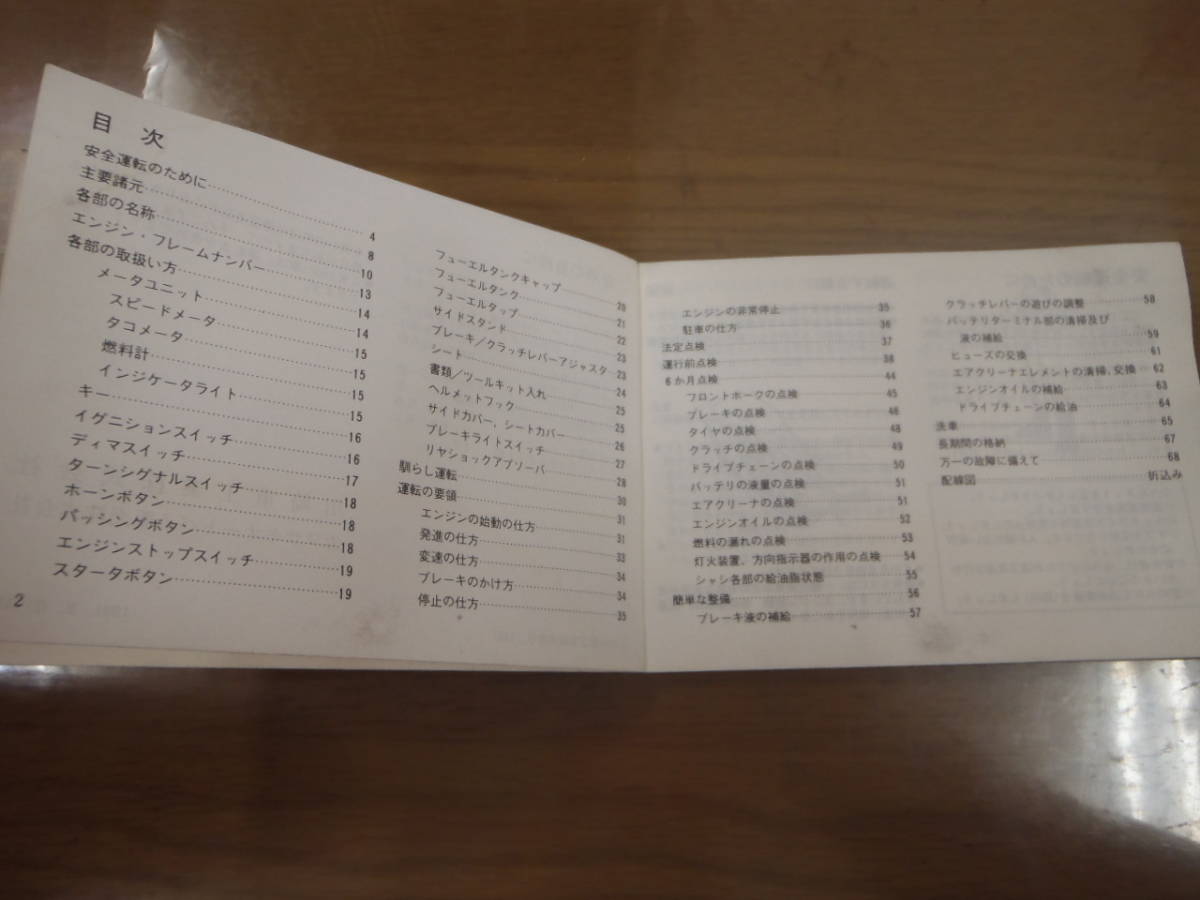 目 次
安全運転のために……………4
主要諸元……………8
各部の名称……………10
エンジン・フレームナンバー……………13
各部の取扱い方……………14
メータユニット……………14
スピードメータ……………15
タコメータ……………15
燃料計……………15
インジケータライト……………15
キー……………16
イグニションスイッチ……………16
ディマスイッチ……………17
ターンシグナルスイッチ……………18
ホーンボタン……………18
パッシングボタン……………18
エンジンストップスイッチ……………19
スタータボタン……………19
2
フューエルタンクキャップ……………20
フューエルタンク……………21
フューエルタップ……………22
サイドスタンド……………23
ブレーキ/クラッチレバーアジャスタ…23
シート……………24
書類/ツールキット入れ……………25
ヘルメットフック……………25
サイドカバー、シートカバー……………26
ブレーキライトスイッチ……………27
リヤショックアブソーバ……………28
馴らし運転……………30
運転の要領……………31
エンジンの始動の仕方……………31
発進の仕方……………33
変速の仕方……………34
ブレーキのかけ方……………34
停止の仕方……………35
エンジンの非常停止……………35
駐車の仕方……………36
法定点検……………37
運行前点検……………38
6か月点検……………44
フロントホークの点検……………45
ブレーキの点検……………46
タイヤの点検……………48
クラッチの点検……………49
ドライブチェーンの点検……………50
バッテリの液量の点検……………51
エアクリーナの点検……………51
エンジンオイルの点検……………52
燃料の漏れの点検……………53
灯火装置、方向指示器の作用の点検…54
シャシ各部の給油脂状態……………55
簡単な整備……………56
ブレーキ液の補給……………57
クラッチレバーの遊びの調整……………58
バッテリターミナル部の清掃及び
液の補給……………59
ヒューズの交換……………61
エアクリーナエレメントの清掃、交換…62
エンジンオイルの補給……………63
ドライブチェーンの給油……………64
洗車……………65
長期間の格納……………67
万一の故障に備えて……………68
配線図……………折込み